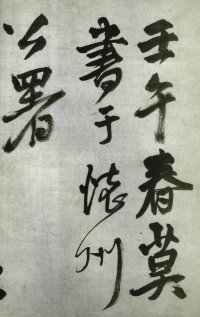 壬午春莫
書于懷州
公署